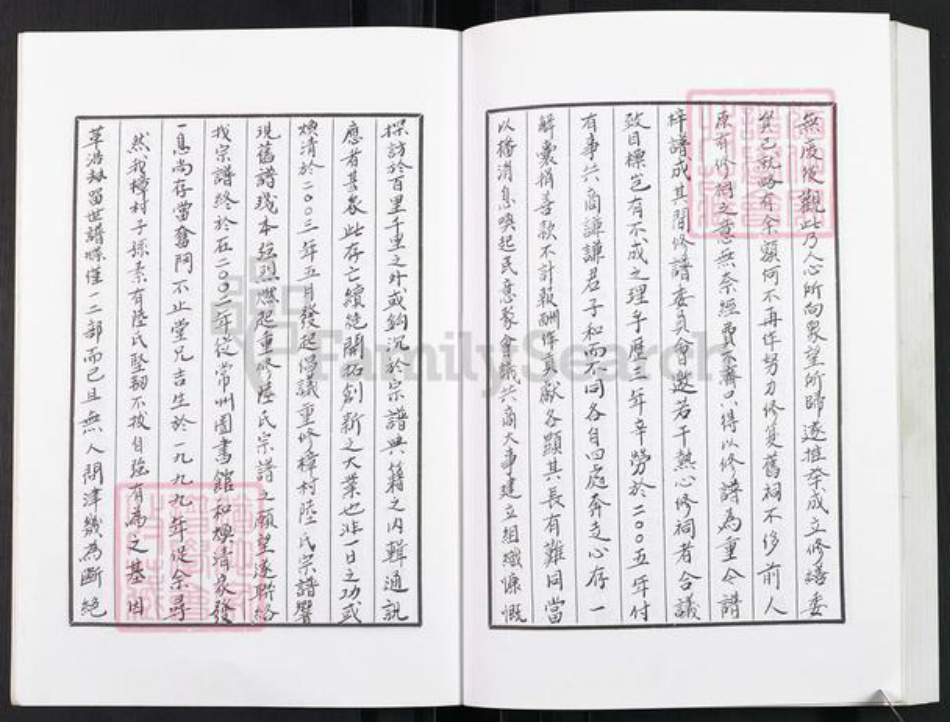 草浩劫留世譜牒僅一二部而已且無人問津幾為斷絕
然我樟村子孫素有陸氏堅韌不拔自強有為之基因
一息尚存當奮鬥不止堂兄吉生於一九九九年從余尋
找宗譜終於在二〇〇二年從常州圖書館和煥清家發
現舊譜殘本強烈燃起重修陸氏宗譜之願望遂聯絡
煥清於二〇〇三年五月發起倡議重修樟村陸氏宗譜響
應者甚衆此存亡續絕開拓創新之大業也非一日之功或
探訪於百里千里之外或鈎沉於宗譜典籍之內輯通訊
以橋消息喚起民意聚會議共商大事建立組織慷慨
解囊捐善款不計報酬作貢獻各顯其長有難同當
有事共商謙謙君子和而不同各自四處奔走心存一
致目標豈有不成之理乎歷三年辛勞於二〇〇五年付
梓譜成其間修譜委員會邀若干熱心修祠者合議
原有修祠之意無奈經費不濟只得以修譜為重今譜
已就略有余額何不再作努力修復舊祠不修前人
無後觀此乃人心所向眾望所歸遂推舉成立修繕委
FamilySearch